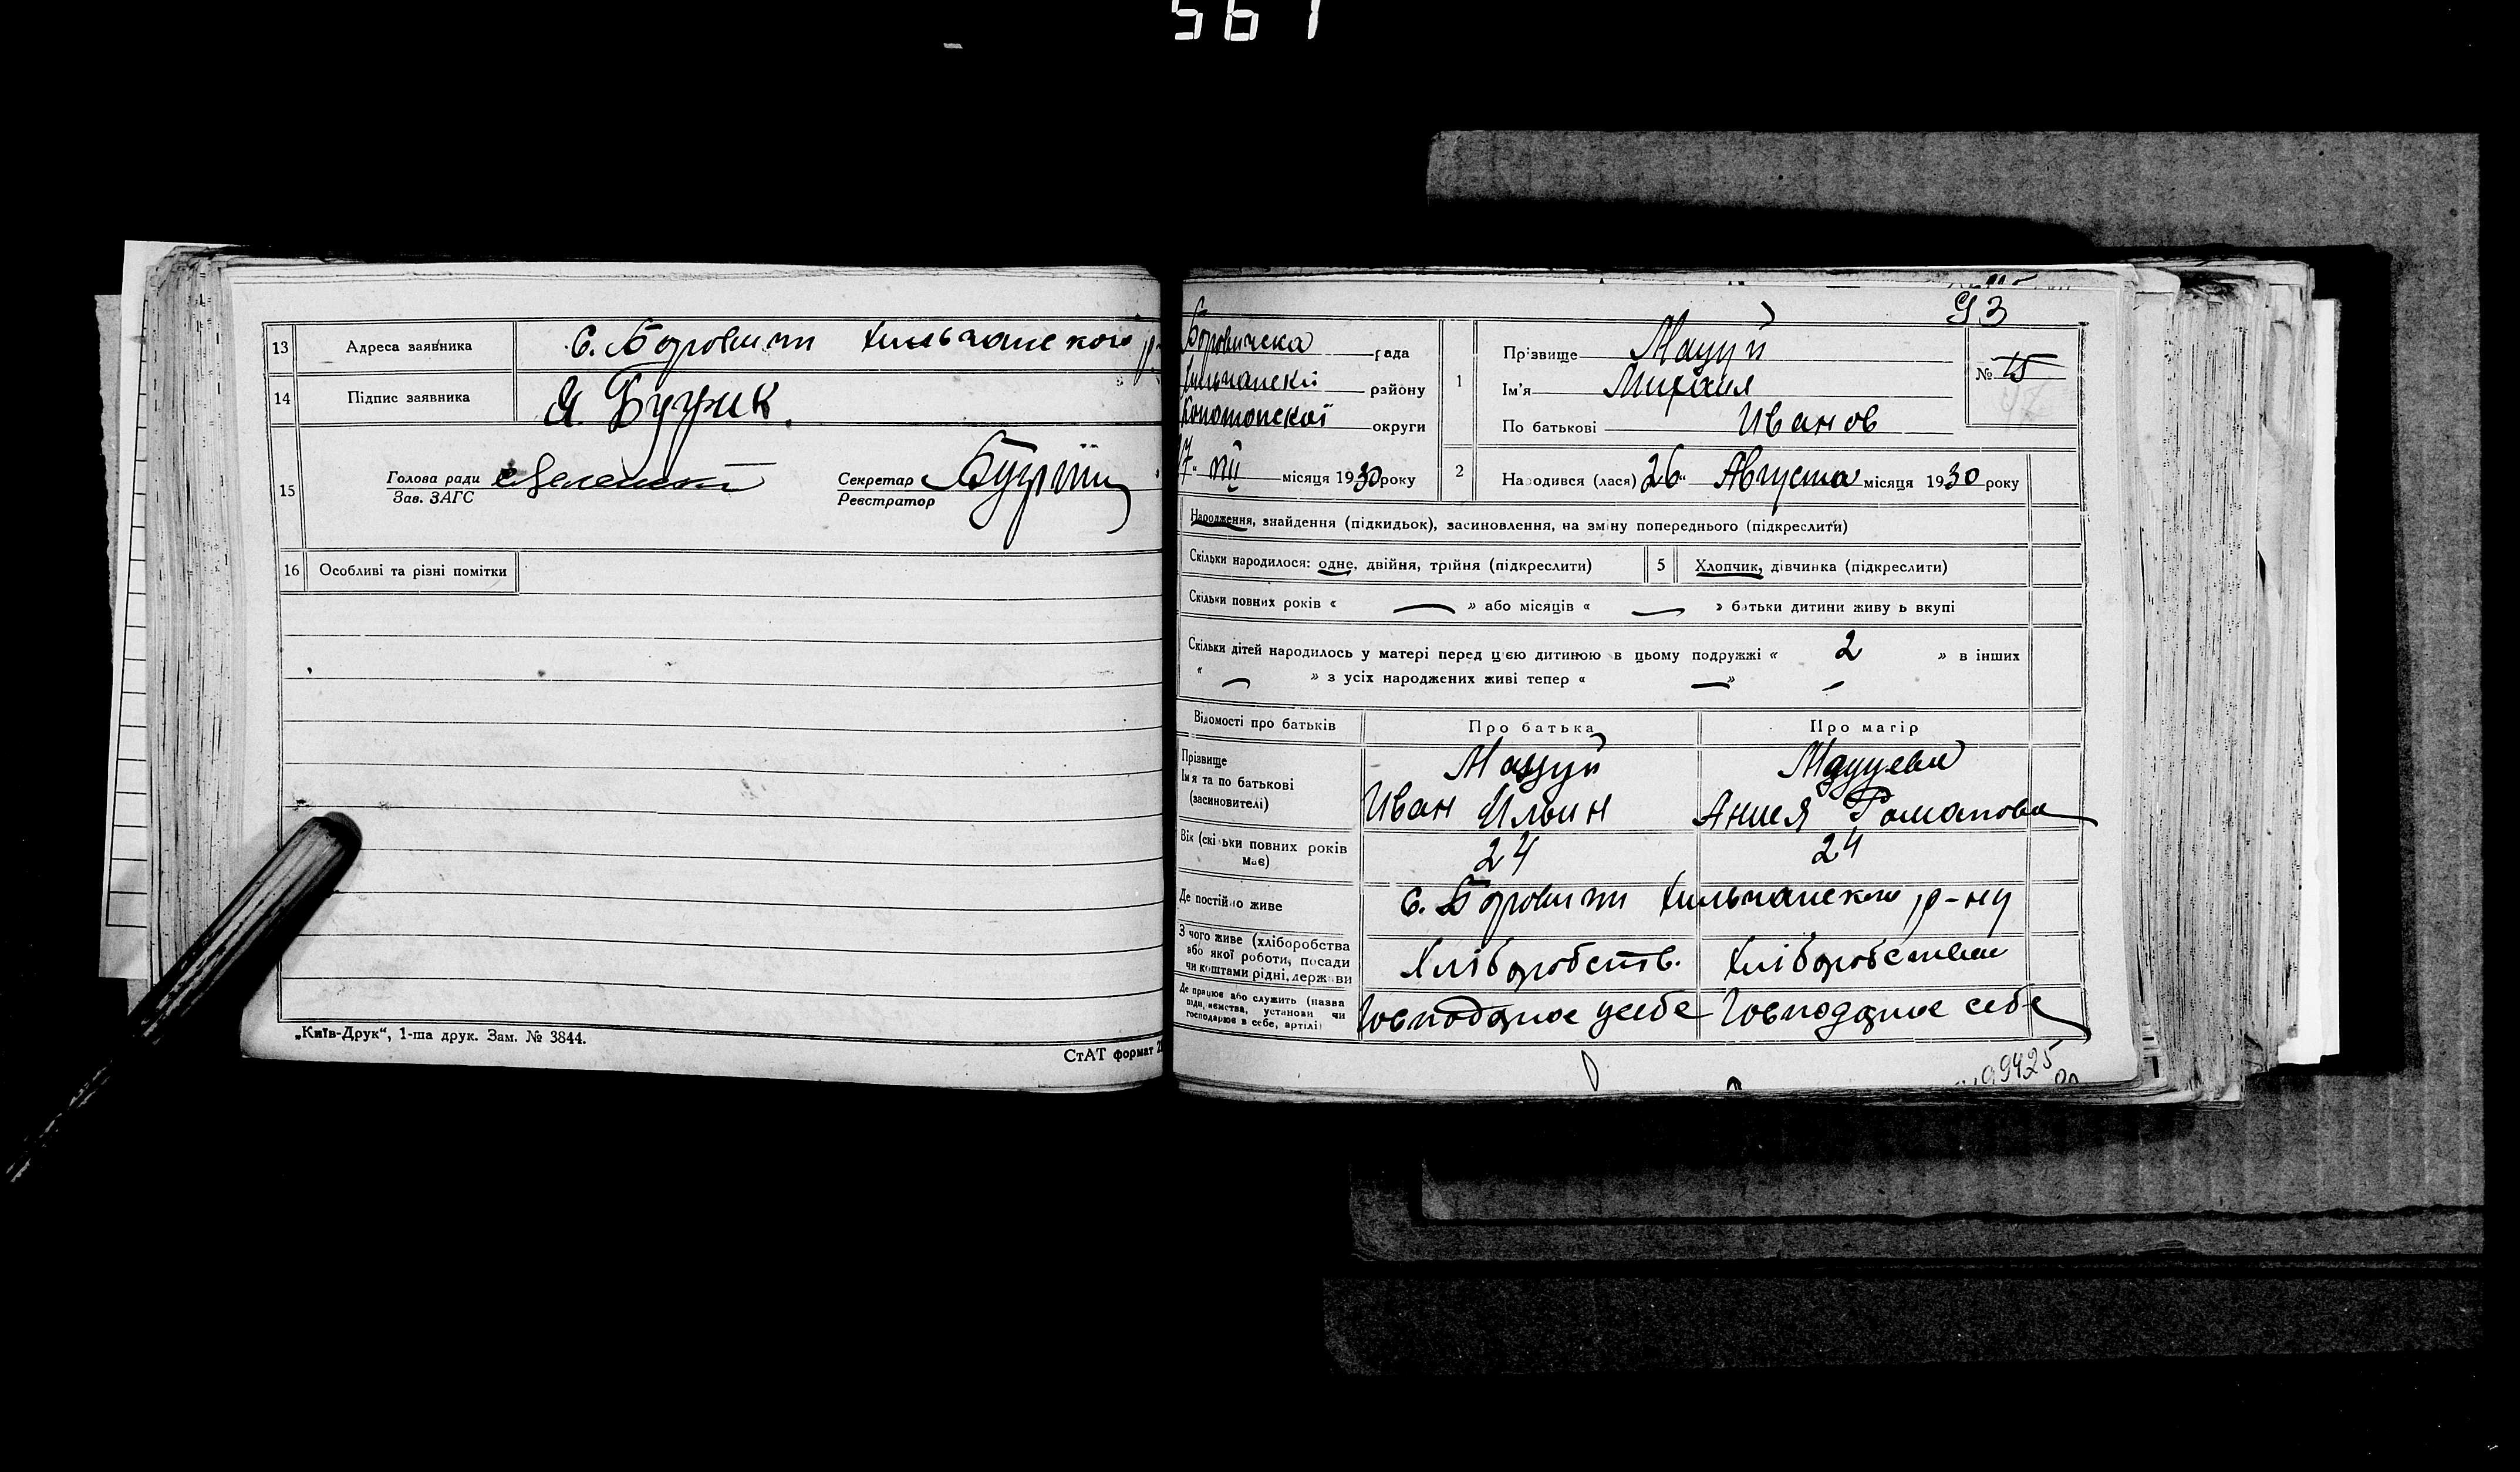 561
13 Адреса заявника
14 Підпис заявника Я.
15 Голова ради
Зав. ЗАГС
Секретар
Реєстратор
16 Особливі та різні помітки
„Київ-Друк“, 1-ша друк. Зам. № 3844.
СтАТ формат
93
рада
району
Конотопской округи
VIII місяця 1930 року
1 Прізвище Мацуй
Ім'я Михаил
По батькові Иванов
№ 15
2 Народився (лася) 26 “ Августа місяця 1930 року
Народження, знайдення (підкидьок), засиновлення, на зміну попереднього (підкреслити)
Скільки народилося: одне, двійня, трійня (підкреслити)
5 Хлопчик, дівчинка (підкреслити)
Скільки повних років « — » або місяців « — » батьки дитини живуть вкупі
Скільки дітей народилось у матері перед цією дитиною в цьому подружжі « 2 » в інших
« — » з усіх народжених живі тепер « — »
Відомості про батьків Про батька Про матір
Прізвище
Ім'я та по батькові
(засиновителі)
Мацуй
Иван Ильин
Романова
Вік (скільки повних років має) 24 24
Де постійно живе с. р-ну
З чого живе (хліборобства
або якої роботи, посади
чи коштами рідні, держави
Хліборобств. Хліборобства
Де працює або служить (назва
підприємства, установи чи
господарює в себе, артілі)
9425